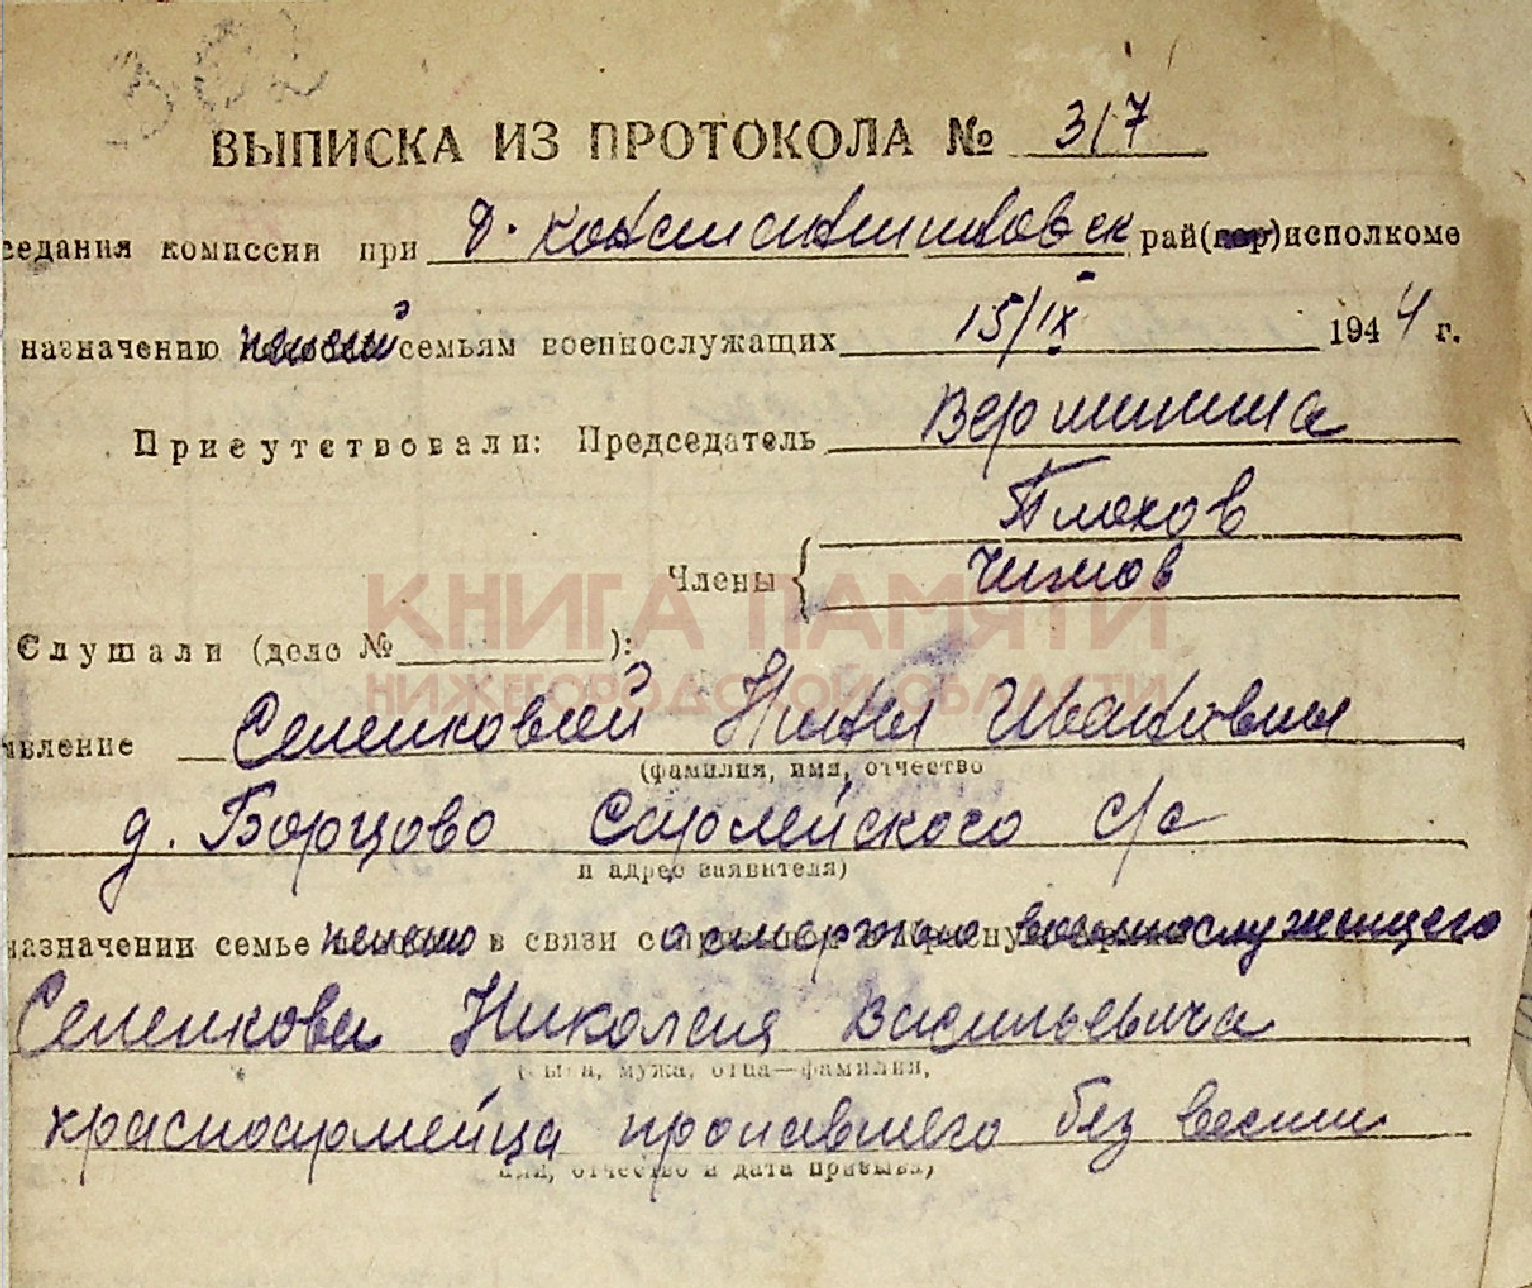 302
ВЫПИСКА ИЗ ПРОТОКОЛА № 317
седания комиссии при Д. Константиновск рай(гор)исполкоме
назначению пенсий семьям военнослужащих 15/IX 1944 г.
Присутствовали: Председатель
Члены {
КНИГА ПАМЯТИ
Слушали (дело № ):
НИЖЕГОРОДСКОЙ ОБЛАСТИ
явление Селенковой Нины Ивановны
(фамилия, имя, отчество
д. Борцово Сарлейского с/с
и адрес заявителя)
назначении семье пенсию в связи с военнослужащего
Селенкова Николая Васильевича
(сына, мужа, отца—фамилия,
красноармейца пропавшего без вести
имя, отчество и дата призыва)